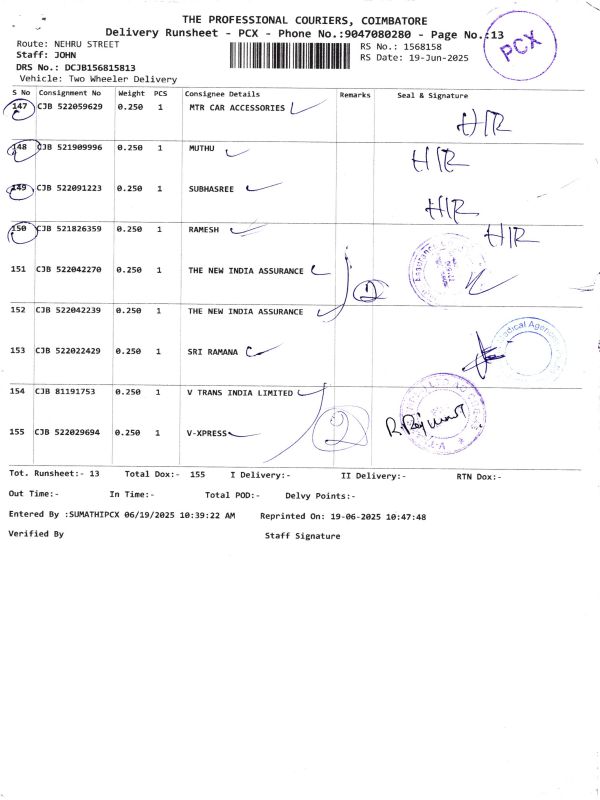 THE PROFESSIONAL COURIERS, COIMBATORE
Delivery Runsheet - PCX - Phone No.:9047080280 - Page No.:13
Route: NEHRU STREET
RS No.: 1568158
Staff: JOHN
RS Date: 19-Jun-2025
DRS No.: DCJB156815813
Vehicle: Two Wheeler Delivery
PCX
S No Consignment No Weight PCS Consignee Details Remarks Seal & Signature
147 CJB 522059629 0.250 1 MTR CAR ACCESSORIES
H/R
148 CJB 521909996 0.250 1 MUTHU
H/R
149 CJB 522091223 0.250 1 SUBHASREE
H/R
150 CJB 521826359 0.250 1 RAMESH
H/R
151 CJB 522042270 0.250 1 THE NEW INDIA ASSURANCE
2
152 CJB 522042239 0.250 1 THE NEW INDIA ASSURANCE
153 CJB 522022429 0.250 1 SRI RAMANA
Medical Agencies
154 CJB 81191753 0.250 1 V TRANS INDIA LIMITED
2
155 CJB 522029694 0.250 1 V-XPRESS
Tot. Runsheet:- 13 Total Dox:- 155 I Delivery:- II Delivery:- RTN Dox:-
Out Time:- In Time:- Total POD:- Delvy Points:-
Entered By :SUMATHIPCX 06/19/2025 10:39:22 AM Reprinted On: 19-06-2025 10:47:48
Verified By Staff Signature